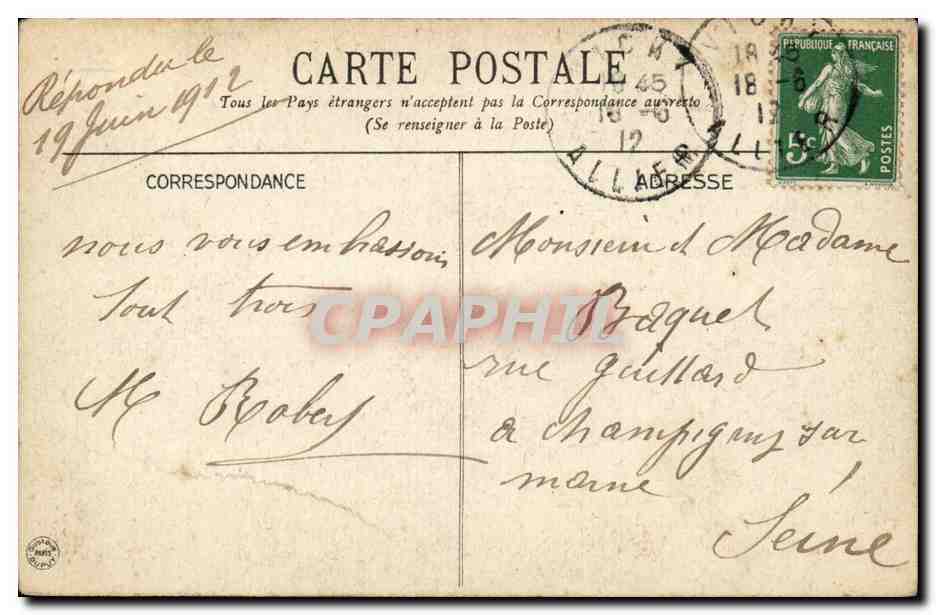 Répondu le
19 Juin 1912
CARTE POSTALE
Tous les Pays étrangers n'acceptent pas la Correspondance au recto
(Se renseigner à la Poste)
VICHY
18 45
18 -6
12
ALLIER
VICHY
18 45
18 -6
12
ALLIER
REPUBLIQUE FRANÇAISE
5c
POSTES
CORRESPONDANCE
nous vous embrassons
tout trois
M Robert
ADRESSE
Monsieur et Madame
Baquet
rue Guillard
a champigny sur
marne
Seine
CPAPHIL
PARIS
DUPUY